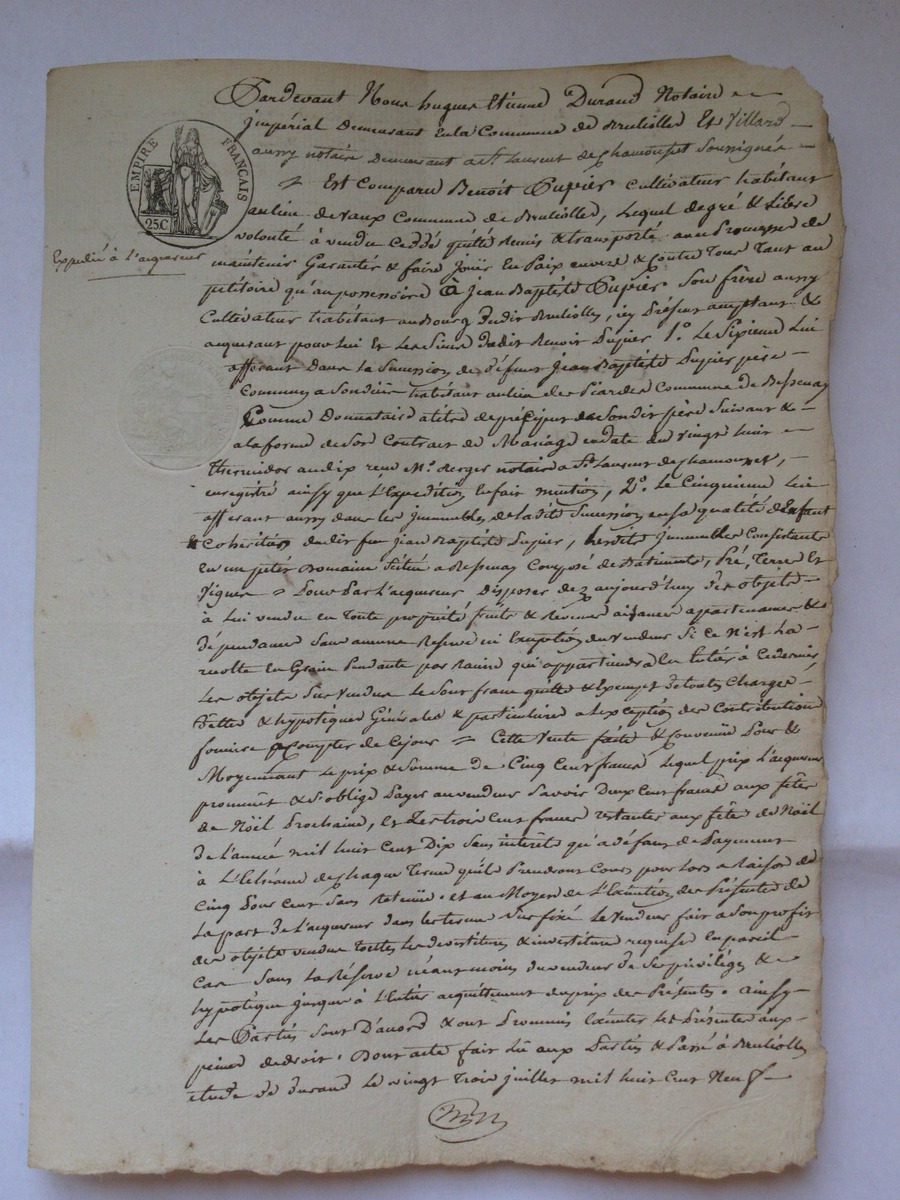 Pardevant Nous hugues Etienne Durand Notaire
EMPIRE FRANÇAIS
25C
Impérial Demeurant En la Commune de Brulliolles Et Villard
aussy notaire Demeurant a St Laurent de Chamousset Soussignés
Est Comparu Benoit Pupier Cultivateur habitant
au lieu de Vaux Commune de Brulliolles, Lequel de gré & Libre
volonté à vendu Ceddé quitté Remis & transporté avec Promesse de
Expedié à l'acquereur
maintenir Garantir & faire Jouïr En Paix envers & Contre Tous Tant au
petitoire qu'au possessoire A Jean Baptiste Pupier Son frère aussy
Cultivateur habitant au Bourg dudit Brulliolles, icy Présent acceptant &
acquerant pour Lui Et Les Siens dudit Benoit Pupier 1.° Le Sixieme Lui
afferant Dans la Succession de Défunt Jean Baptiste Pupier père
Commun a Son décès habitant au lieu des Commune de Bessenay
Comme Donnataire a titre de préciput de Son dit père Suivant &
a la forme de Son Contrat de Mariage en date du vingt huit
thermidor an dix reçu Me. Berger notaire a St Laurent de Chamousset,
enregistré ainsy que L'Expedition En fait mention, 2.° Le Cinquieme Lui
afferant aussy dans les immeubles de la dite Succession en Sa qualité d'Enfant
& Cohéritier dudit feu Jean Baptiste Pupier, Lesdits Immeubles Consistants
En un petit Domaine Scitué a Bessenay Composé de Bâtiments, Pré, Terre Et
Vignes Pour Par L'acquereur Disposer dez aujourd'huy des objets
à Lui vendu en Toute propriété fruits & Revenus aisances appartenances &
dépendances Sans aucune Reserve ni Exception du vendeur Si Ce N'est La
recolte En Grain Pendante par Racine qui appartiendra En entier à Ce dernier,
Les objets Sus vendus Le Sont franc quitte & Exempt de toutes Charges
Dettes & hypotèques Générales & particulières a L'exception des Contributions
foncière à Compter de Cejour Cette Vente faite & Convenüe Pour &
Moyennant Le prix & Somme de Cinq Cent francs Lequel prix L'acquereur
promet & S'oblige Payer au vendeur Savoir Deux Cent francs aux fêtes
de Noël Prochaine, Et Les trois Cent francs restantes aux fête de Noël
de L'année mil huit Cent Dix Sans interêts qu'a défaut de Payement
à L'Echéance de Chaque Terme qu'ils Prendront Cours pour Lors a Raison de
Cinq Pour Cent Sans retenüe, et au Moyen de L'Exécution des Présentes de
La part de L'acquereur dans les termes Sus fixé Le vendeur fait a Son profit
des objets vendus Toutes Les devestitures & investiture requise En pareil
Cas Sous La Réserve néantmoins du vendeur de Ses privilèges &
hypotèque jusque à L'Entier acquittement du prix des Présentes. ainsy
Les Parties Sont D'accord & ont Promis Exécuter Les Présentes aux
peines de droit. Dont acte fait Lû aux Parties & Passé à Brulliolles
étude de Durand Le vingt Trois juillet mil huit Cent Neuf